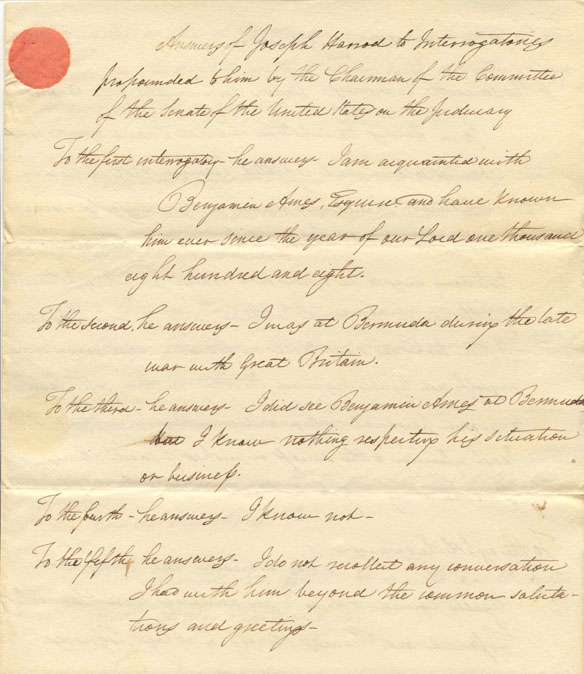 Answers of Joseph Harrod to Interrogatories
propounded to him by the Chairman of the Committee
of the Senate of the United States on the Judiciary
To the first interrogatory - he answers - I am acquainted with
Benjamin Ames, Esquire. and have known
him ever since the year of our Lord one thousand
eight hundred and eight.
To the second, he answers - I was at Bermuda during the late
war with Great Britain.
To the third - he answers - I did see Benjamin Ames at Bermuda
but I know nothing respecting his situation
or business.
To the fourth - he answers - I know not -
To the fifth he answers - I do not recollect any conversation
I had with him beyond the common saluta-
tions and greetings -